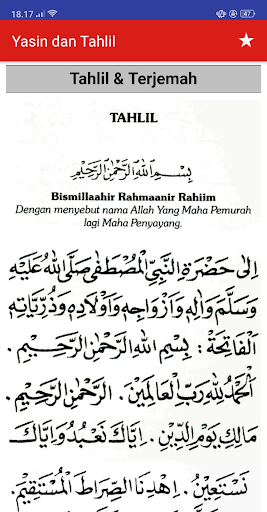 18.17
82
Yasin dan Tahlil
Tahlil & Terjemah
TAHLIL
بِسْمِ اللهِ الرَّحْمٰنِ الرَّحِيْمِ
Bismillaahir Rahmaanir Rahiim
Dengan menyebut nama Allah Yang Maha Pemurah
lagi Maha Penyayang.
اِلىٰ حَضْرَةِ النَّبِيِّ الْمُصْطَفٰى صَلَّى اللهُ عَلَيْهِ
وَسَلَّمَ وَاٰلِهِ وَاَزْوَاجِهِ وَاَوْلَادِهِ وَذُرِّيَّاتِهِ
اَلْفَاتِحَةُ : بِسْمِ اللهِ الرَّحْمٰنِ الرَّحِيْمِ .
اَلْحَمْدُ لِلّٰهِ رَبِّ الْعَالَمِيْنَ . اَلرَّحْمٰنِ الرَّحِيْمِ .
مَالِكِ يَوْمِ الدِّيْنِ . اِيَّاكَ نَعْبُدُ وَاِيَّاكَ
نَسْتَعِيْنُ . اِهْدِنَا الصِّرَاطَ الْمُسْتَقِيْمَ .